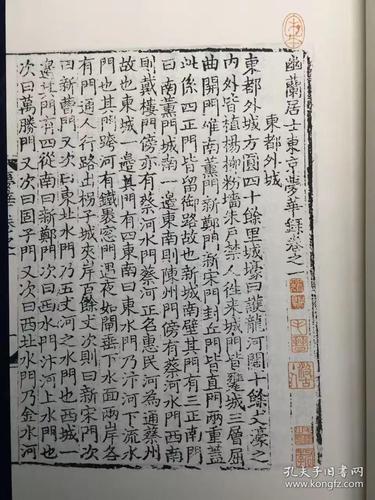 幽蘭居士東京夢華錄卷之一
東都外城
東都外城方圓四十餘里城壕曰護龍河闊十餘丈濠之
內外皆植楊柳粉墻朱戶禁人往來城門皆甕城三層屈
曲開門唯南薰門新鄭門新宋門封丘門皆直門兩重蓋
此係四正門皆留御路故也新城南壁其門有三正南門
曰南薰門城南一邊東南則陳州門傍有蔡河水門西南
則戴樓門傍亦有蔡河水門蔡河正名惠民河為通蔡州
故也東城一邊其門有四東南曰東水門乃汴河下流水
門也其門跨河有鐵裹窓門遇夜如閘垂下水面兩岸各
有門通人行路出拐子城夾岸百餘丈次則曰新宋門次
曰新曹門又次曰東北水門乃五丈河之水門也西城一
邊其門有四從南曰新鄭門次曰西水門汴河上水門也
次曰萬勝門又次曰固子門又次曰西北水門乃金水河
孔夫子旧书网
www.kongfz.com